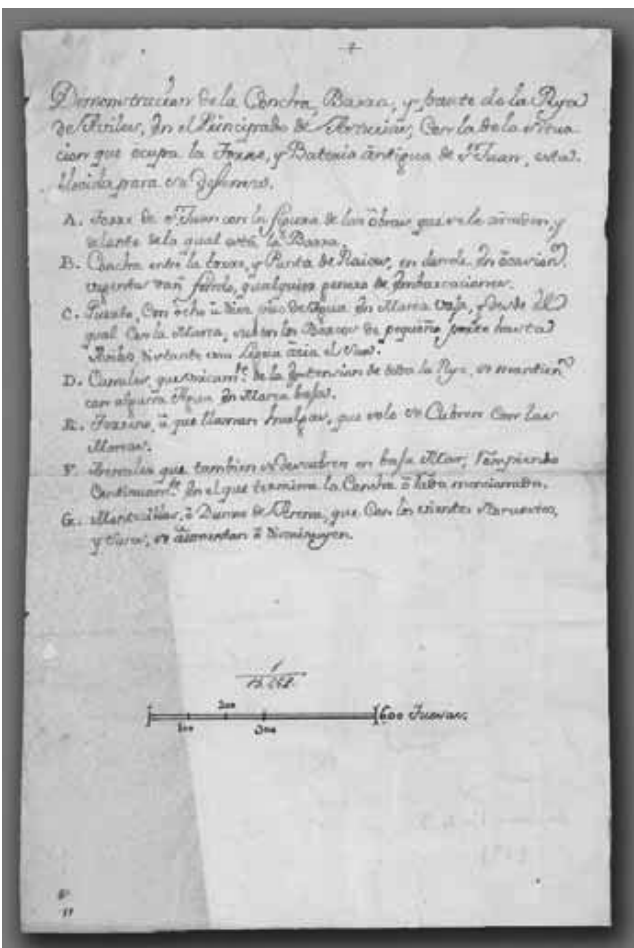 Demonstracion de la Concha, Barra, y parte de la Rya
de Aviles, En el Principado de Asturias, Con la de la situa
cion que ocupa la Torre, y Bateria antigua de Sn. Juan, esta
blecida para su defensa.
A. Torre de Sn. Juan con la figura de las obras que se le añaden, y
delante de la qual está la Barra.
B. Concha entre la torre, y Punta de Raices, en donde En ocasion
urgente dan fondo, qualquiera genero de Embarcaciones.
C. Puesto, Con ocho ù diez pies de Agua En Marea vaja, y desde el
qual Con la Marea, suben los Barcos de pequeño porte hasta
Aviles distante una Legua ácia el Sur.
D. Canales, que unicamte. de la Extension de toda la Rya, se mantien
con alguna Agua En Marea baja.
E. Terreno, à que llaman que solo se Cubren Con las
Mareas.
F. Arenales que tambien se descubren en baja Mar, Rompiendo
Continuamte. En el que termina la Concha
G. ò Dunas de Arena, que Con los vientos
y se aumentan ò disminuyen.
100 200 300 600 Tuesas.